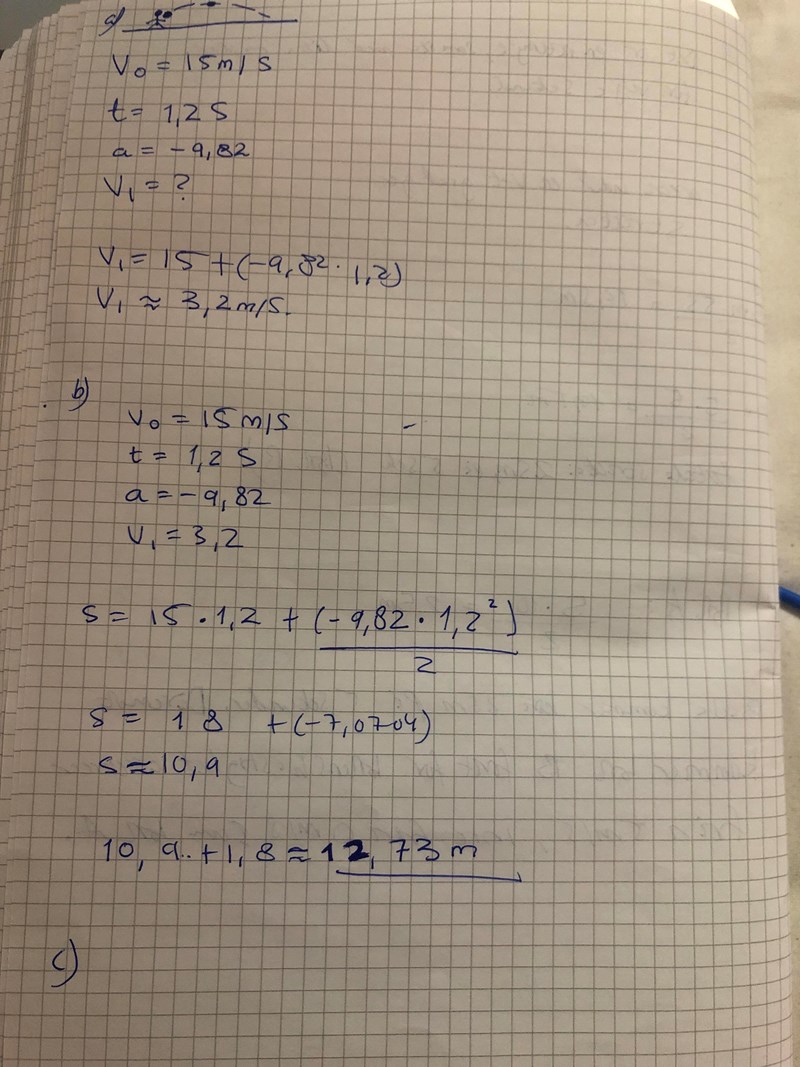 a)
V₀ = 15 m/s
t = 1,2 s
a = -9,82
V₁ = ?
V₁ = 15 + (-9,82 · 1,2)
V₁ ≈ 3,2 m/s.
b)
V₀ = 15 m/s
t = 1,2 s
a = -9,82
V₁ = 3,2
s = 15 · 1,2 + (-9,82 · 1,2²)
2
s = 18 + (-7,0704)
s ≈ 10,9
10,9.. + 1,8 ≈ 12,73 m
c)